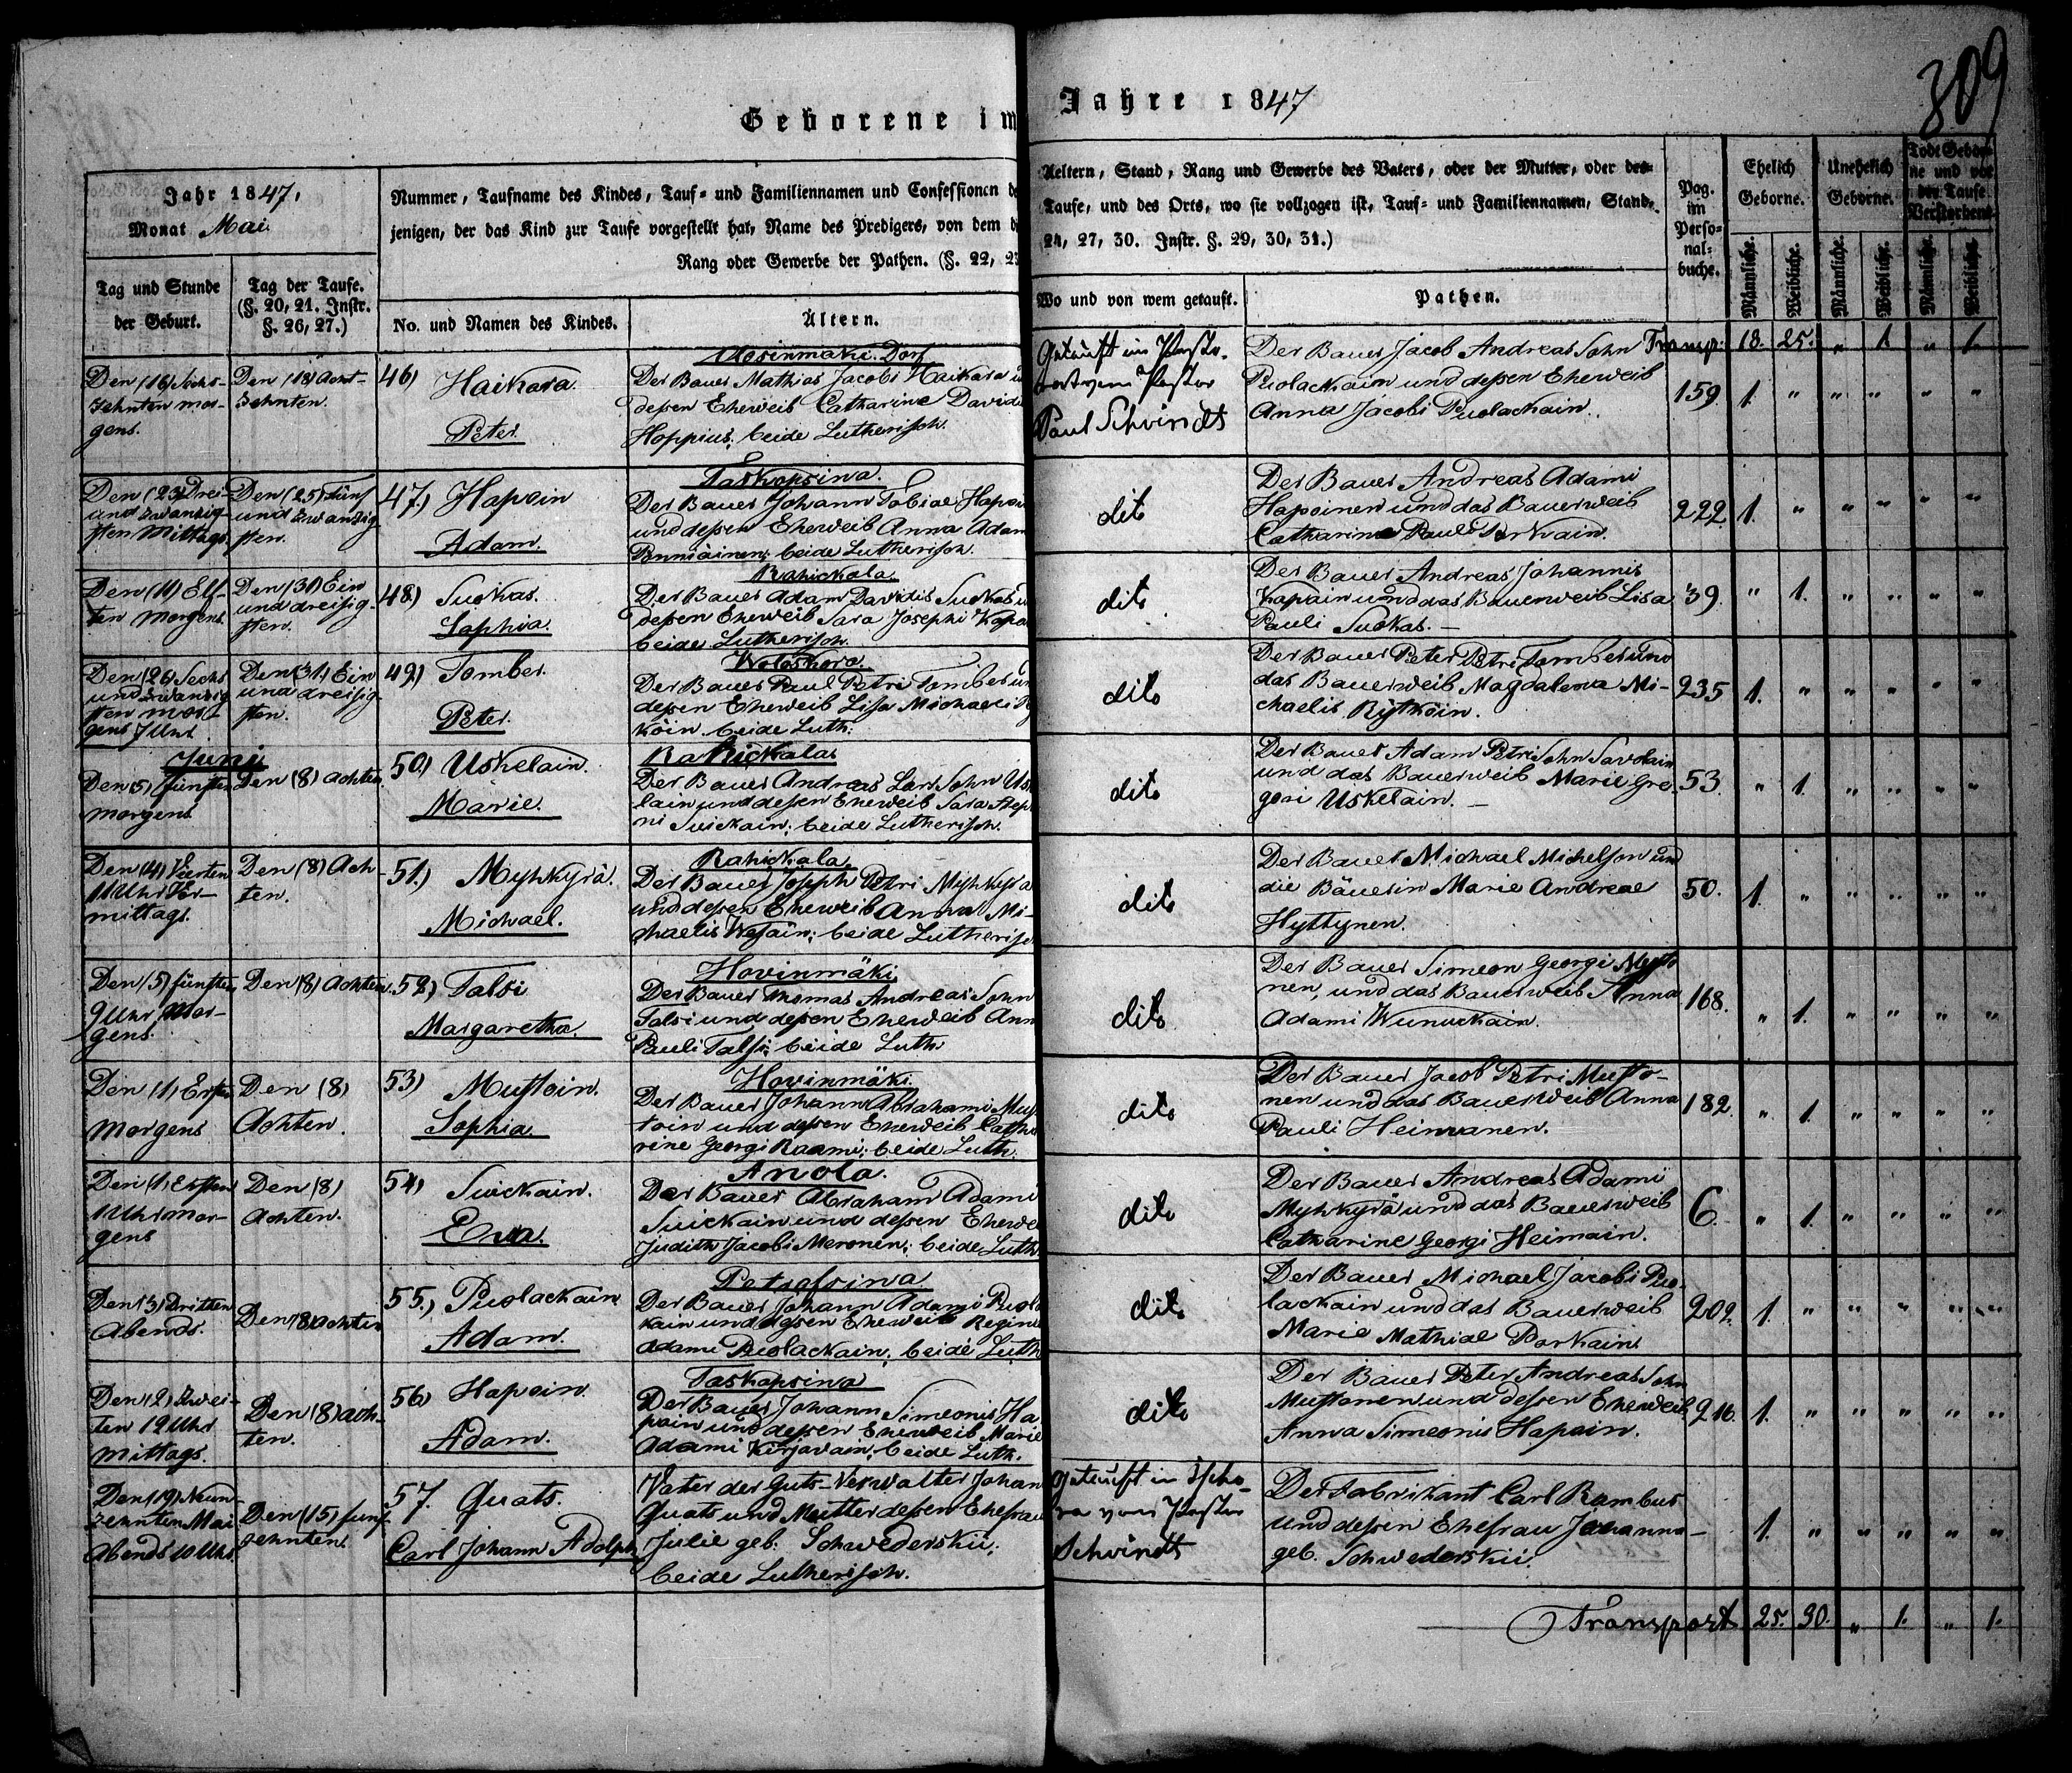 309
Geborene im Jahre 1847
Jahr 1847,
Monat Mai
Nummer, Taufname des Kindes, Tauf- und Familiennamen und Confessionen d
jenigen, der das Kind zur Taufe vorgestellt hat, Name des Predigers, von dem d
Rang oder Gewerbe der Pathen. (§. 22, 2
Tag und Stunde
der Geburt.
Tag der Taufe.
(§. 20, 21. Instr.
§. 26, 27.)
No. und Namen des Kindes.
Ältern.
Aeltern, Stand, Rang und Gewerbe des Vaters, oder der Mutter, oder des-
Taufe, und des Orts, wo sie vollzogen ist, Tauf- und Familiennamen, Stand,
24, 27, 30. Instr. §. 29, 30, 31.)
Wo und von wem getauft.
Pathen.
Pag.
im
Perso-
nal-
buche.
Ehelich
Geborne.
Unehelich
Geborne.
Todt Gebor-
ne und vor
der Taufe
Verstorbene
Männliche.
Weibliche.
Männliche.
Weibliche.
Männliche.
Weibliche.
Transp. 18. 25. " 1. " 1.
Den (16) Sechs-
zehnten mor-
gens.
Den (18) Acht-
zehnten.
46) Haikara
Peter
Dorf
Der Bauer Mathias Jacobi Haikara u
dessen Eheweib Catharine Davidi
Hoppius; beide Lutherisch.
Getauft im Pasto-
rat vom Pastor
Paul Schvindt
Der Bauer Jacob Andreas Sohn
Puolackain und dessen Eheweib
Anna Jacobi Puolackain.
159. 1. " " " " "
Den (23) Drei-
und zwanzig-
sten Mittags
Den (25) Fünf
und zwanzig
sten.
47.) Hapoin
Adam.
Taskopsina.
Der Bauer Johann Tobiae Hapoi
und dessen Eheweib Anna Adam
beide Lutherisch.
dito
Der Bauer Andreas Adami
Hapoinen und das Bauerweib
Catharina Pauli Porkain.
222 1. " " " " "
Den (11) Elf-
ten Morgens.
Den (31) Ein
und dreißig-
sten.
48.) Suokas.
Sophia.
Rahickala
Der Bauer Adam Davidis Suokas u
dessen Eheweib Sara Josephi Kapa
beide Lutherisch.
dito
Der Bauer Andreas Johannis
Kapain und das Bauerweib Lisa
Pauli Suokas. —
39. " 1. " " " "
Den (26) Sechs
und zwanzig
sten mor-
gens 7 Uhr.
Den (31) Ein
und dreißig-
sten.
49.) Tomber.
Peter.
Woloskora.
Der Bauer Paul Petri Tomber un
dessen Eheweib Lisa Michaeli Ry
köin. beide Luth.
dito
Der Bauer Peter Petri Tomber und
das Bauerweib Magdalena Mi-
chaelis Rytköin.
235 1. " " " " "
Juni
Den (5) fünften
morgens
Den (8) achten.
50.) Uskelain.
Marie.
Rahickala
Der Bauer Andreas Lars Sohn Us
lain und dessen Eheweib Sara Step
ni Suickain; beide Lutherisch.
dito
Der Bauer Adam Petri Sohn Savolain
und das Bauerweib Marie Gre-
gori Uskelain. —
53. " 1. " " " "
Den (4) Vierten
11 Uhr Vor-
mittags.
Den (8) Ach-
ten.
51.) Myhkyrä.
Michael.
Rahickala
Der Bauer Joseph Petri Myhkyrä
und dessen Eheweib Anna Mi-
chaelis Wesain; beide Lutherisch
dito
Der Bauer Michael Michelson und
die Bäuerin Marie Andreae
Hyttynen.
50. 1. " " " " "
Den (5) fünften
9 Uhr Mor-
gens.
Den (8) Achten.
52.) Talsi
Margaretha.
Hovinmäki
Der Bauer Thomas Andreas Sohn
Talsi und dessen Eheweib Ann
Pauli Talsi; beide Luth.
dito
Der Bauer Simeon Georgi Musto
nen, und das Bauerweib Anna
Adami
168. " 1. " " " "
Den (1) Ersten
Morgens
Den (8)
Achten.
53) Mustoin.
Sophia.
Hovinmäki
Der Bauer Johann Abrahami Mus
toin und dessen Eheweib Catha
rine Georgi Raami; beide Luth.
dito
Der Bauer Jacob Petri Musto-
nen und das Bauerweib Anna
Pauli Heimanen.
182. " 1. " " " "
Den (1) Ersten
1 Uhr mor-
gens
Den (8)
Achten.
54) Suickain.
Eva.
Anola.
Der Bauer Abraham Adami
Suickain und dessen Ehewe
Judith Jacobi Meronen; beide Luth.
dito
Der Bauer Andreas Adami
Myhkyrä und das Bauerweib
Catharine Georgi Heimain.
6. " 1. " " " "
Den (3) Dritten
Abends.
Den (8) achten
55.) Puolackain
Adam.
Petrassina
Der Bauer Johann Adami Puola
kain und dessen Eheweib Regine
Adami Puolackain; beide Luth
dito
Der Bauer Michael Jacobi Puo-
lackain und das Bauerweib
Marie Mathiae Porkain
202. 1. " " " " "
Den (2) Zwei-
ten 12 Uhr
Mittags.
Den (8) ach-
ten.
56) Hapoin
Adam.
Taskopsina
Der Bauer Johann Simeonis Ha-
poin und dessen Eheweib Marie
Adami Kirjavain; beide Luth.
dito
Der Bauer Peter Andreas Sohn
Mustonen und dessen Eheweib
Anna Simeonis Hapoin.
216. 1. " " " " "
Den (19) Neun-
zehnten Mai
Abends 10 Uhr.
Den (15) fünf-
zehnten.
57. Quats.
Carl Johann Adolph
Vater der Guts-Verwalter Johan
Quats und Mutter dessen Ehefrau
Julie geb. Schwederskii;
beide Lutherisch.
Getauft in
vom Pastor
Schvindt
Der Fabrikant Carl Rambus
und dessen Ehefrau Johanna
geb. Schwederskii.
— 1. " " " " "
Transport 25. 30. " 1. " 1.